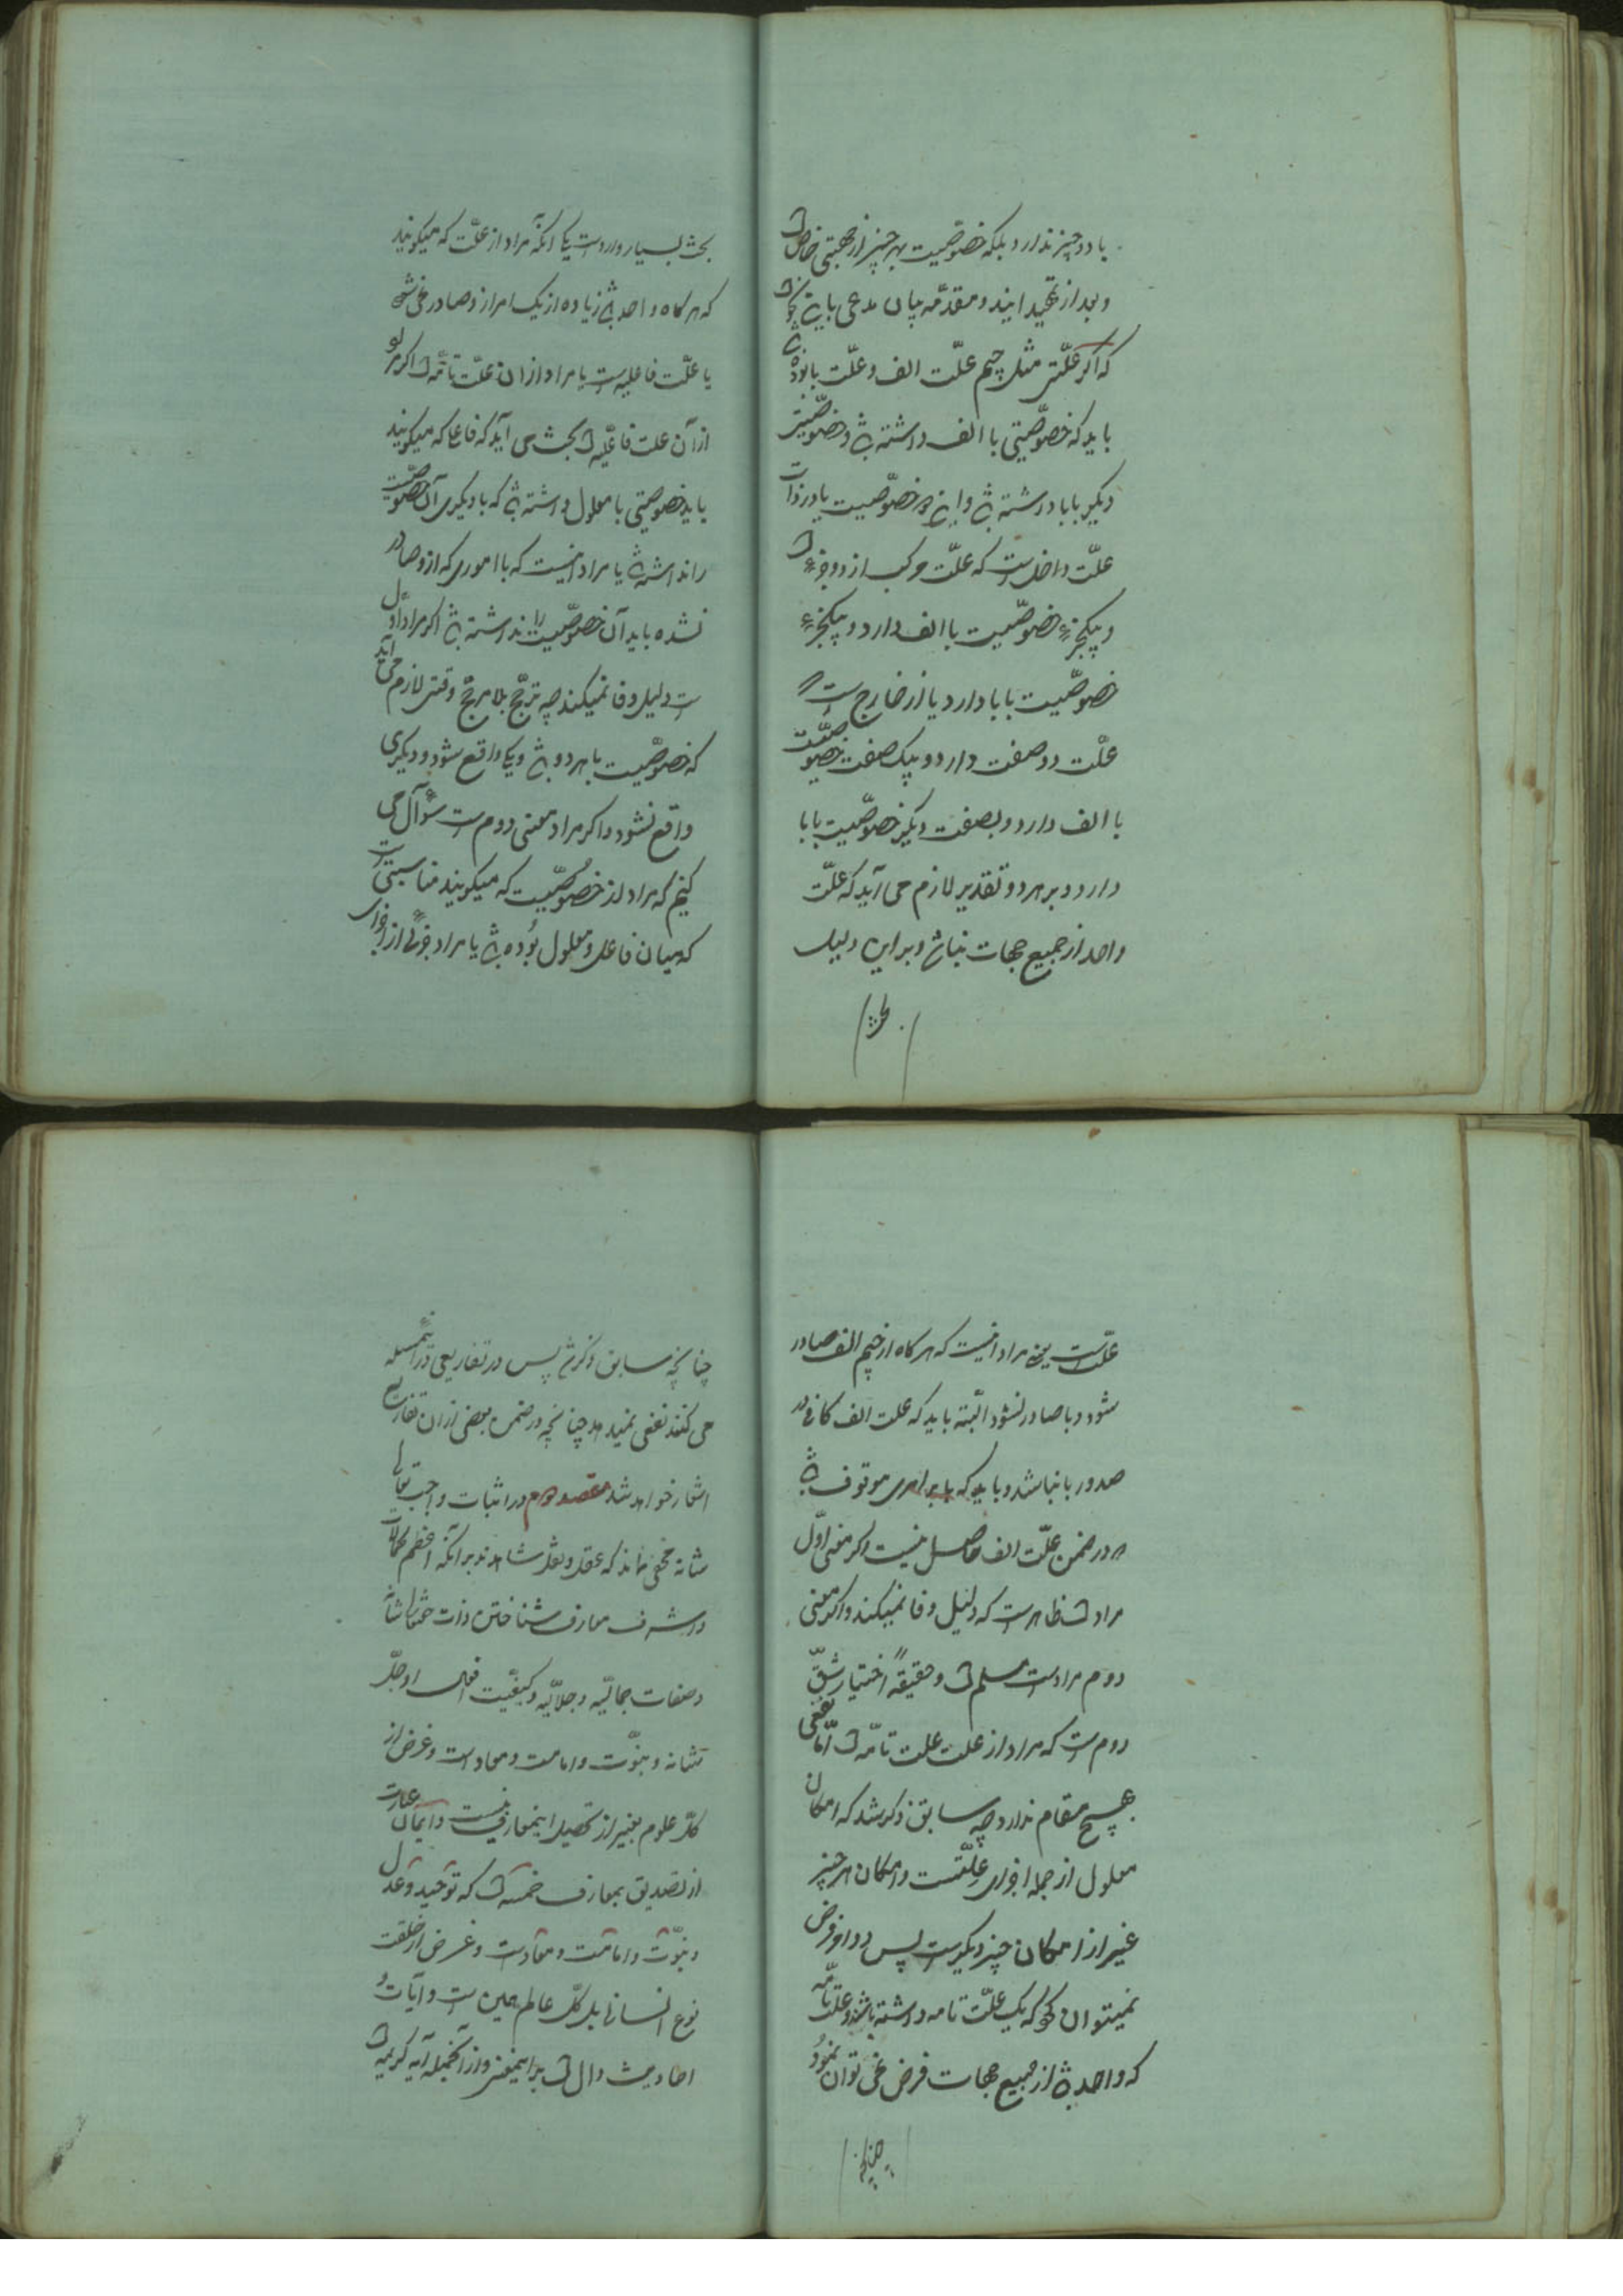 با دو چیز ندارد بلکه خصوصیت بهر چیز از جهتی خاص است
و بعد از تمهید این دو مقدمه بیان مدعی باین نحو است
که اگر علتی مثل جیم علت الف و علت با بوده باشد
باید که خصوصیتی با الف داشته باشد و خصوصیتی
دیگر با با داشته باشد و این دو خصوصیت یا در ذات
علت داخل است که علت مرکب از دو جزء است
و بیکجزء خصوصیت با الف دارد و بیکجزء
خصوصیت با با دارد یا از خارج است که
علت دو صفت دارد و بیک صفت خصوصیت
با الف دارد و بصفت دیگر خصوصیت با با
دارد و بر هر دو تقدیر لازم می آید که علت
واحد از جمیع جهات نباشد و بر این دلیل
بحث
بحث بسیار وارد است یکی آنکه مراد از علت که میگویند
که هر کاه واحد باشد زیاده از یک امر از و صادر نمی شود
یا علت فاعلیه است یا مراد از ان علت تامه است اگر مراد
از آن علت فاعلیه است بحث می آید که فاعل که میگویند
باید خصوصیتی با معلول داشته باشد که با دیگری آن خصوصیت
را نداشته باشد یا مراد اینست که با اموری که از و صادر
نشده باید آن خصوصیت را نداشته باشد اگر مراد اول
است دلیل وفا نمیکند چه ترجیح بلا مرجح وقتی لازم می آید
که خصوصیت با هر دو باشد و یکی واقع شود و دیگری
واقع نشود و اگر مراد معنی دوم است سؤال می
کنیم که مراد از خصوصیت که میگویند مناسبتی است
که میان فاعل و معلول بوده باشد یا مراد جزئی از اجزای
علت است یعنی مراد اینست که هر کاه از جیم الف صادر
شود و با صادر نشود البته باید که علت الف کافی در
صدور با نباشد و باید که با بر امری موقوف باشد
که در ضمن علت الف حاصل نیست اگر معنی اول
مراد است ظاهر است که دلیل وفا نمیکند و اگر معنی
دوم مراد است مسلم است و حقیقةً اختیار شق
دوم است که مراد از علت علت تامه است اما نفعی
بهیچ مقام ندارد چه سابق ذکر شد که امکان
معلول از جمله اجزای علتست و امکان هر چیز
غیر از امکان چیز دیگر است پس دو امر فرض
نمیتوان کرد که یک علت تامه داشته باشند و علت تامه
که واحد باشد از جمیع جهات فرض نمی توان نمود
چنانچه
چنانچه سابق ذکر شد پس در تفاریعی که در این مسئله
می کنند نفعی نمیدهد چنانچه در ضمن بعضی از ان تفاریع
اشاره خواهد شد مقصد دوم در اثبات واجب تعالی
شانه مخفی نماند که عقل و نقل شاهدند بر آنکه اعظم کمالات
و اشرف معارف شناختن ذات حقتعالی شانه
و صفات جمالیه و جلالیه و کیفیت افعال او جل
شانه و نبوت و امامت و معاد است و غرض از
کل علوم بغیر از تحصیل اینمعارف نیست و ایمان عبارت
از تصدیق بمعارف خمسه است که توحید و عدل
و نبوت و امامت و معاد است و غرض از خلقت
نوع انسانی بل کل عالم همین است و آیات و
احادیث دال است بر اینمعنی و از آنجمله آیه کریمه است